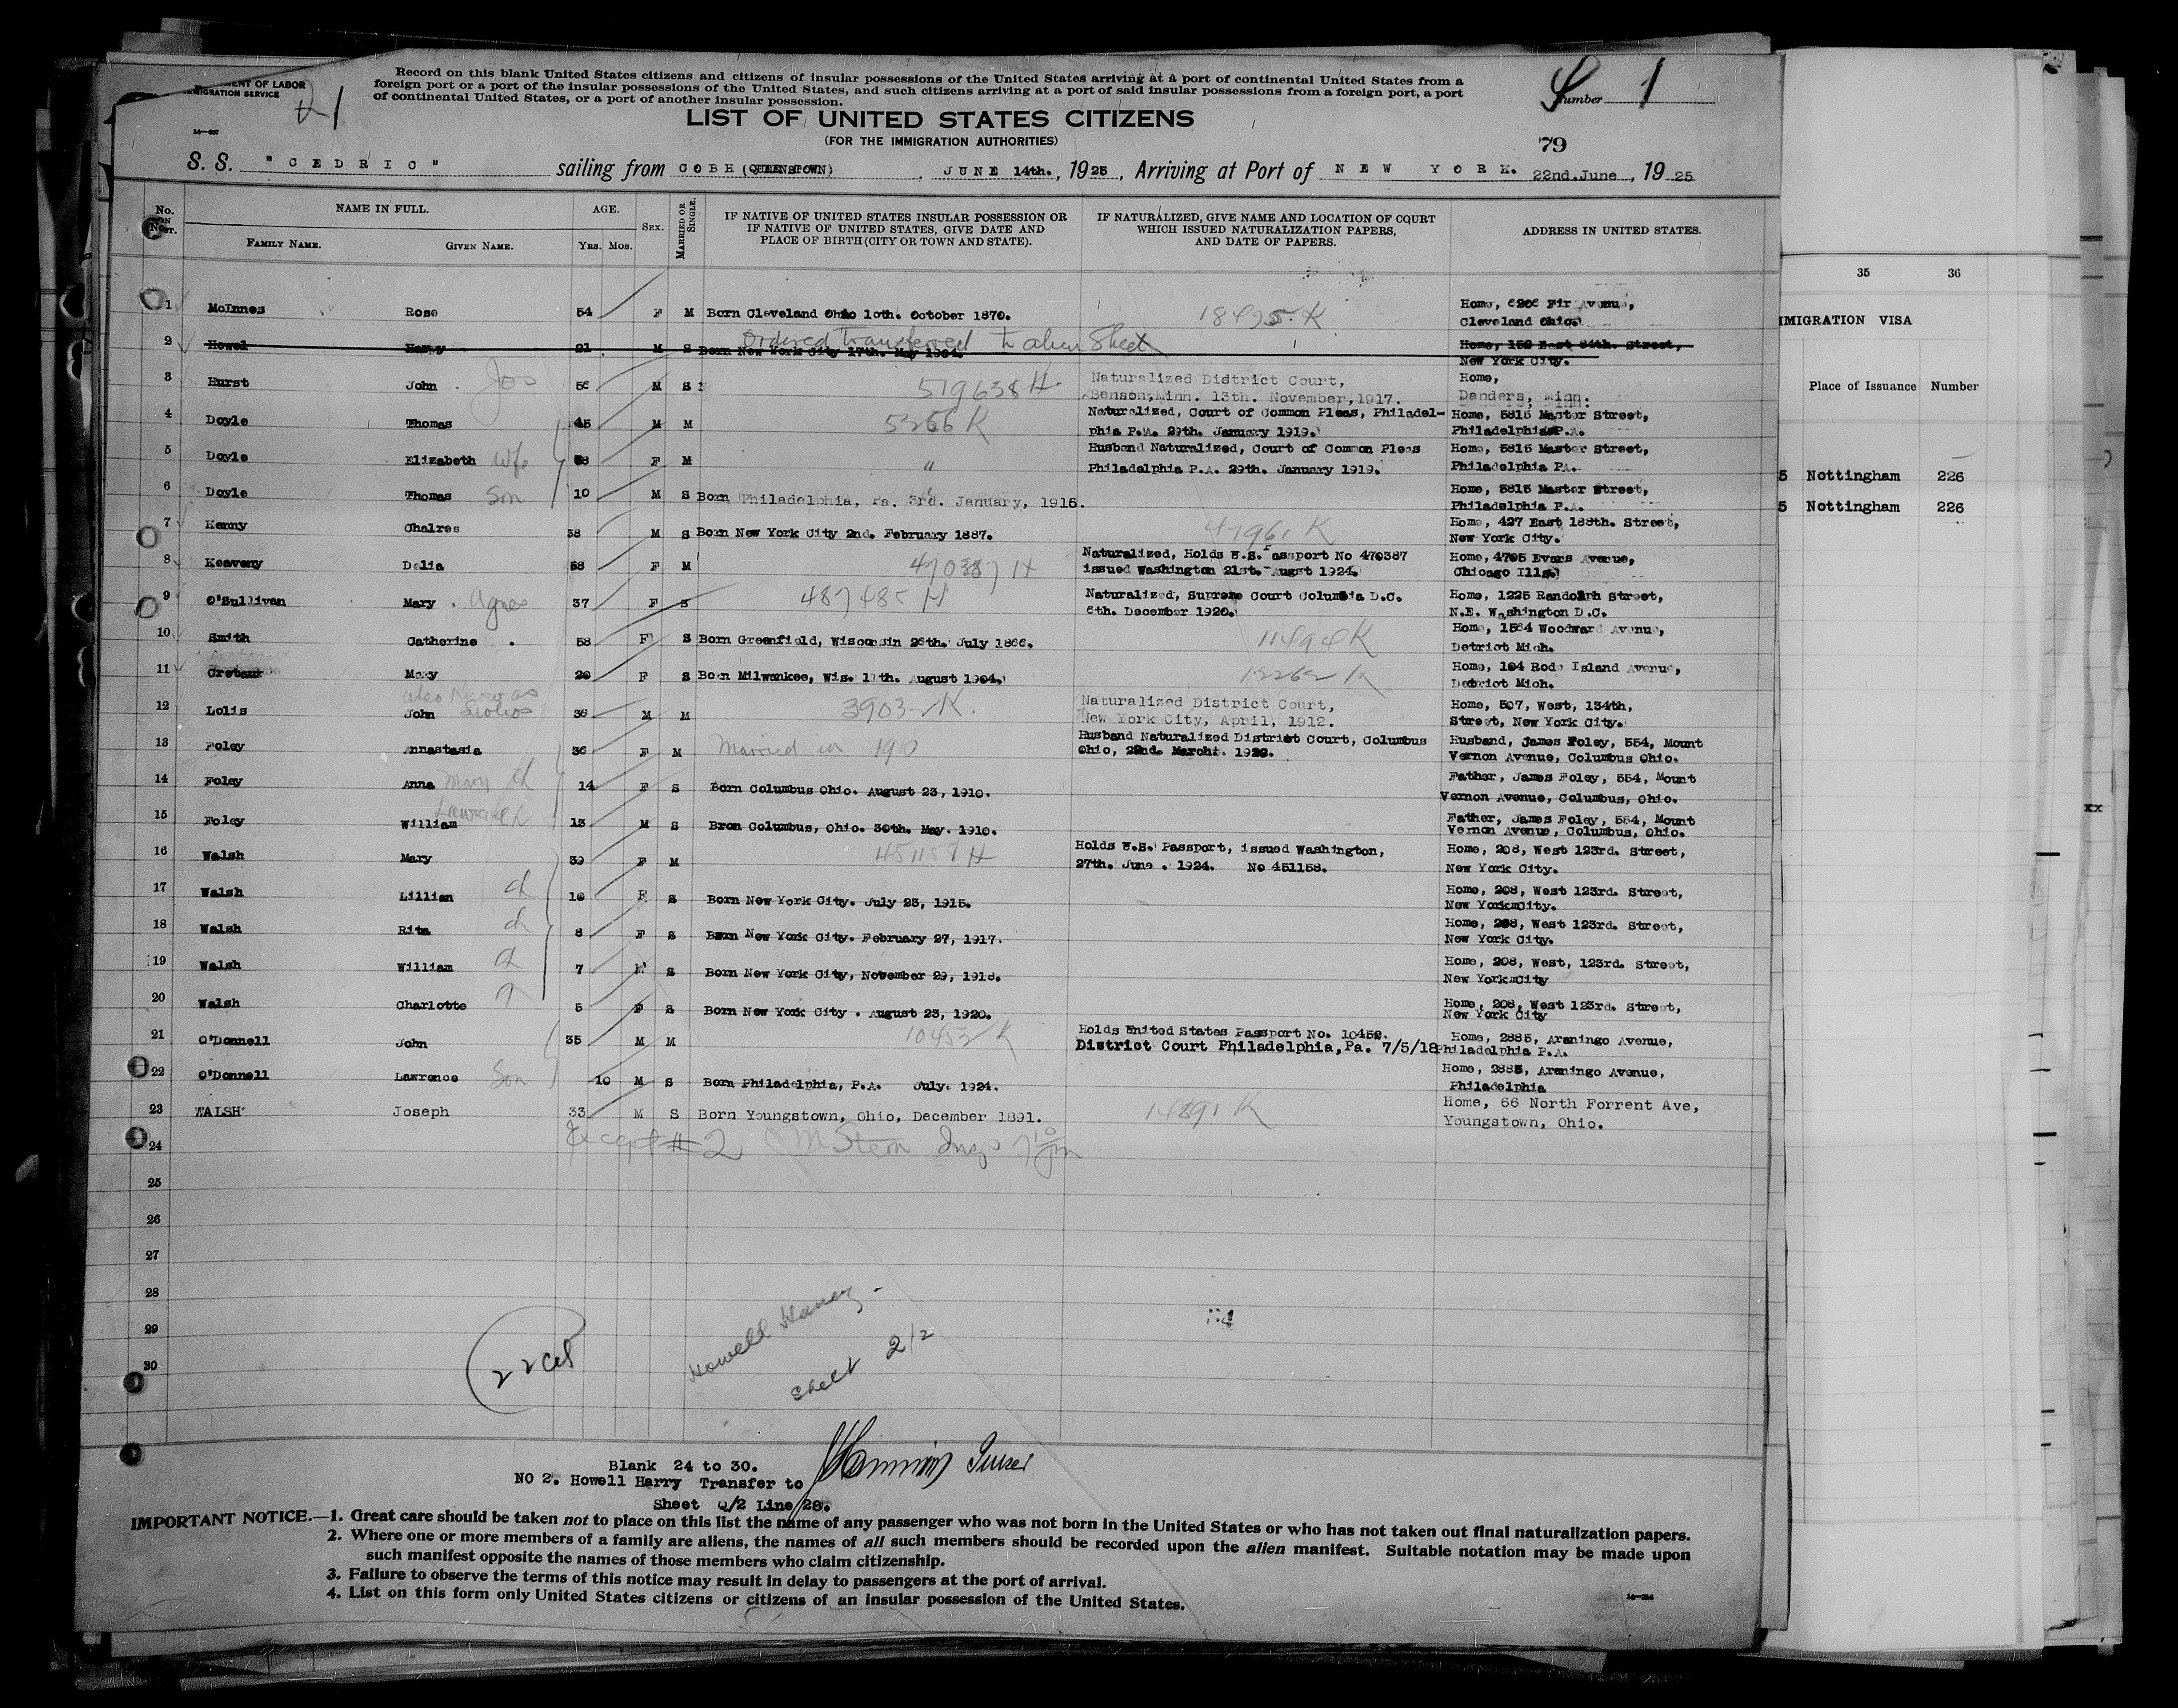 MENT OF LABOR
MIGRATION SERVICE
Record on this blank United States citizens and citizens of insular possessions of the United States arriving at a port of continental United States from a
foreign port or a port of the insular possessions of the United States, and such citizens arriving at a port of said insular possessions from a foreign port, a port
of continental United States, or a port of another insular possession.
umber 1
LIST OF UNITED STATES CITIZENS
(FOR THE IMMIGRATION AUTHORITIES)
79
S. S. "CEDRIC" sailing from COBH (QUEENSTOWN) , JUNE 14th., 1925, Arriving at Port of NEW YORK. 22nd.June, 1925
No. ON LIST. NAME IN FULL. AGE. SEX. MARRIED OR SINGLE. IF NATIVE OF UNITED STATES INSULAR POSSESSION OR IF NATIVE OF UNITED STATES, GIVE DATE AND PLACE OF BIRTH (CITY OR TOWN AND STATE). IF NATURALIZED, GIVE NAME AND LOCATION OF COURT WHICH ISSUED NATURALIZATION PAPERS, AND DATE OF PAPERS. ADDRESS IN UNITED STATES.
FAMILY NAME. GIVEN NAME. YRS. MOS.
1 McInnes Rose 54 F M Born Cleveland Ohio 10th. October 1870. 18495 K Home, 6206 Fir Avenue,
Cleveland Ohio.
Ordered transferred to alien Sheet
2 Howel Harry 21 M S Born New York City 17th. May 1904. Home, 159 East 84th. Street,
New York City.
3 Hurst John Jos 56 M S 519638 H Naturalized District Court, Home,
Benson,Minn. 13th. November,1917. Danders, Minn.
4 Doyle Thomas 45 M M 5266 K Naturalized, Court of Common Pleas, Philadel- Home, 5815 Master Street,
phia P.A. 29th. January 1919. Philadelphia P.A.
5 Doyle Elizabeth wife 38 F M " Husband Naturalized, Court of Common Pleas Home, 5815 Master Street,
Philadelphia P.A. 29th. January 1919. Philadelphia PA.
6 Doyle Thomas Son 10 M S Born Philadelphia, Pa. 3rd. January, 1915. Home, 5815 Master Street,
Philadelphia P.A.
7 Kenny Chalres 38 M S Born New York City 2nd. February 1887. 47961 K Home, 427 East 188th. Street,
New York City.
8 Keaveny Delia 58 F M 470387 H Naturalized, Holds U.S. Passport No 470387 Home, 4705 Evars Avenue,
issued Washington 21st. Augst 1924. Chicago Ills.
9 O'Sullivan Mary Agnes 37 F S 487485 H Naturalized, Supreme Court Columbia D.C. Home, 1225 Randolph Street,
6th. December 1920. N.E. Washington D.C.
10 Smith Catherine 58 F S Born Greenfield, Wisconsin 26th. July 1866. 11494 K Home, 1564 Woodward Avenue,
Detriot Mich.
11 Cretaur Mary 20 F S Born Milwaukee, Wis. 11th. August 1904. 12262 K Home, 104 Rode Island Avenue,
Detriot Mich.
also known as
12 Lolis John 36 M M 3903 K. Naturalized District Court, Home, 507, West, 134th,
New York City, April, 1912. Street, New York City.
13 Foley Annastasia 36 F M Married in 1910 Husband Naturalized District Court, Columbus Husband, James Foley, 554, Mount
Ohio, 22nd. March. Vernon Avenue, Columbus Ohio.
14 Foley Anna Mary ch 14 F S Born Columbus Ohio. August 23, 1910. Father, James Foley, 554, Mount
Vernon Avenue, Columbus, Ohio.
15 Foley William Lawrence 13 M S Bron Columbus, Ohio. 30th. May. 1910. Father, James Foley, 554, Mount
Vernon Avenue, Columbus, Ohio.
16 Walsh Mary 39 F M 451158 H Holds U.S. Passport, issued Washington, Home, 208, West 123rd. Street,
27th. June . 1924. No 451158. New York City.
17 Walsh Lillian ch 10 F S Born New York City. July 23, 1915. Home, 208, West 123rd. Street,
New YorkmCity.
18 Walsh Rita ch 8 F S Born New York City. February 27, 1917. Home, 208, West 123rd. Street,
New York City.
19 Walsh William ch 7 M S Born New York City, November 29, 1918. Home, 208, West, 123rd. Street,
New YorkmCity
20 Walsh Charlotte 5 F S Born New York City . August 23, 1920. Home, 208, West 123rd. Street,
New York City
21 O'Donnell John 35 M M 10452 K Holds United States Passport No. 10452. Home, 2885, Araningo Avenue,
District Court Philadelphia,Pa. 7/5/18 Philadelphia P.A.
22 O'Donnell Lawrence Son 10 M S Born Philadelphia, P.A. July. 1924. Home, 2885, Araningo Avenue,
Philadelphia
23 WALSH Joseph 33 M S Born Youngstown, Ohio, December 1891. 14891 K Home, 66 North Forrent Ave,
Youngstown, Ohio.
24 Except #2 Stern Insp
25
26
27
28
29
30
22 cit
Howell Harry
Sheet 2/2
Blank 24 to 30.
NO 2. Howell Harry Transfer to
Sheet Q/2 Line 28.
IMPORTANT NOTICE.—1. Great care should be taken not to place on this list the name of any passenger who was not born in the United States or who has not taken out final naturalization papers.
2. Where one or more members of a family are aliens, the names of all such members should be recorded upon the alien manifest. Suitable notation may be made upon
such manifest opposite the names of those members who claim citizenship.
3. Failure to observe the terms of this notice may result in delay to passengers at the port of arrival.
4. List on this form only United States citizens or citizens of an insular possession of the United States.
35 36
IMIGRATION VISA
Place of Issuance Number
5 Nottingham 226
5 Nottingham 226
xx